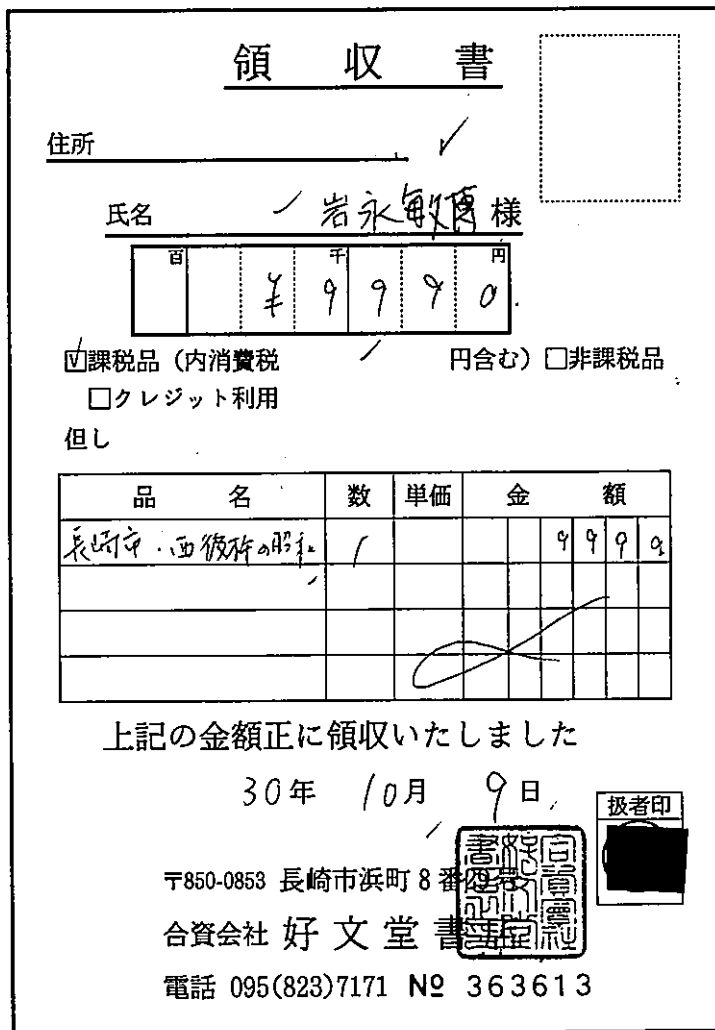 領収書
住所
氏名 岩永敏博 様
百 千 円
¥9990
☑課税品（内消費税 円含む）□非課税品
□クレジット利用
但し
品名 数 単価 金額
長崎市・西彼杵の昭和 1 9990
上記の金額正に領収いたしました
30年 10月 9日
扱者印
〒850-0853 長崎市浜町8番29号
合資会社 好文堂書店
電話 095(823)7171 № 363613